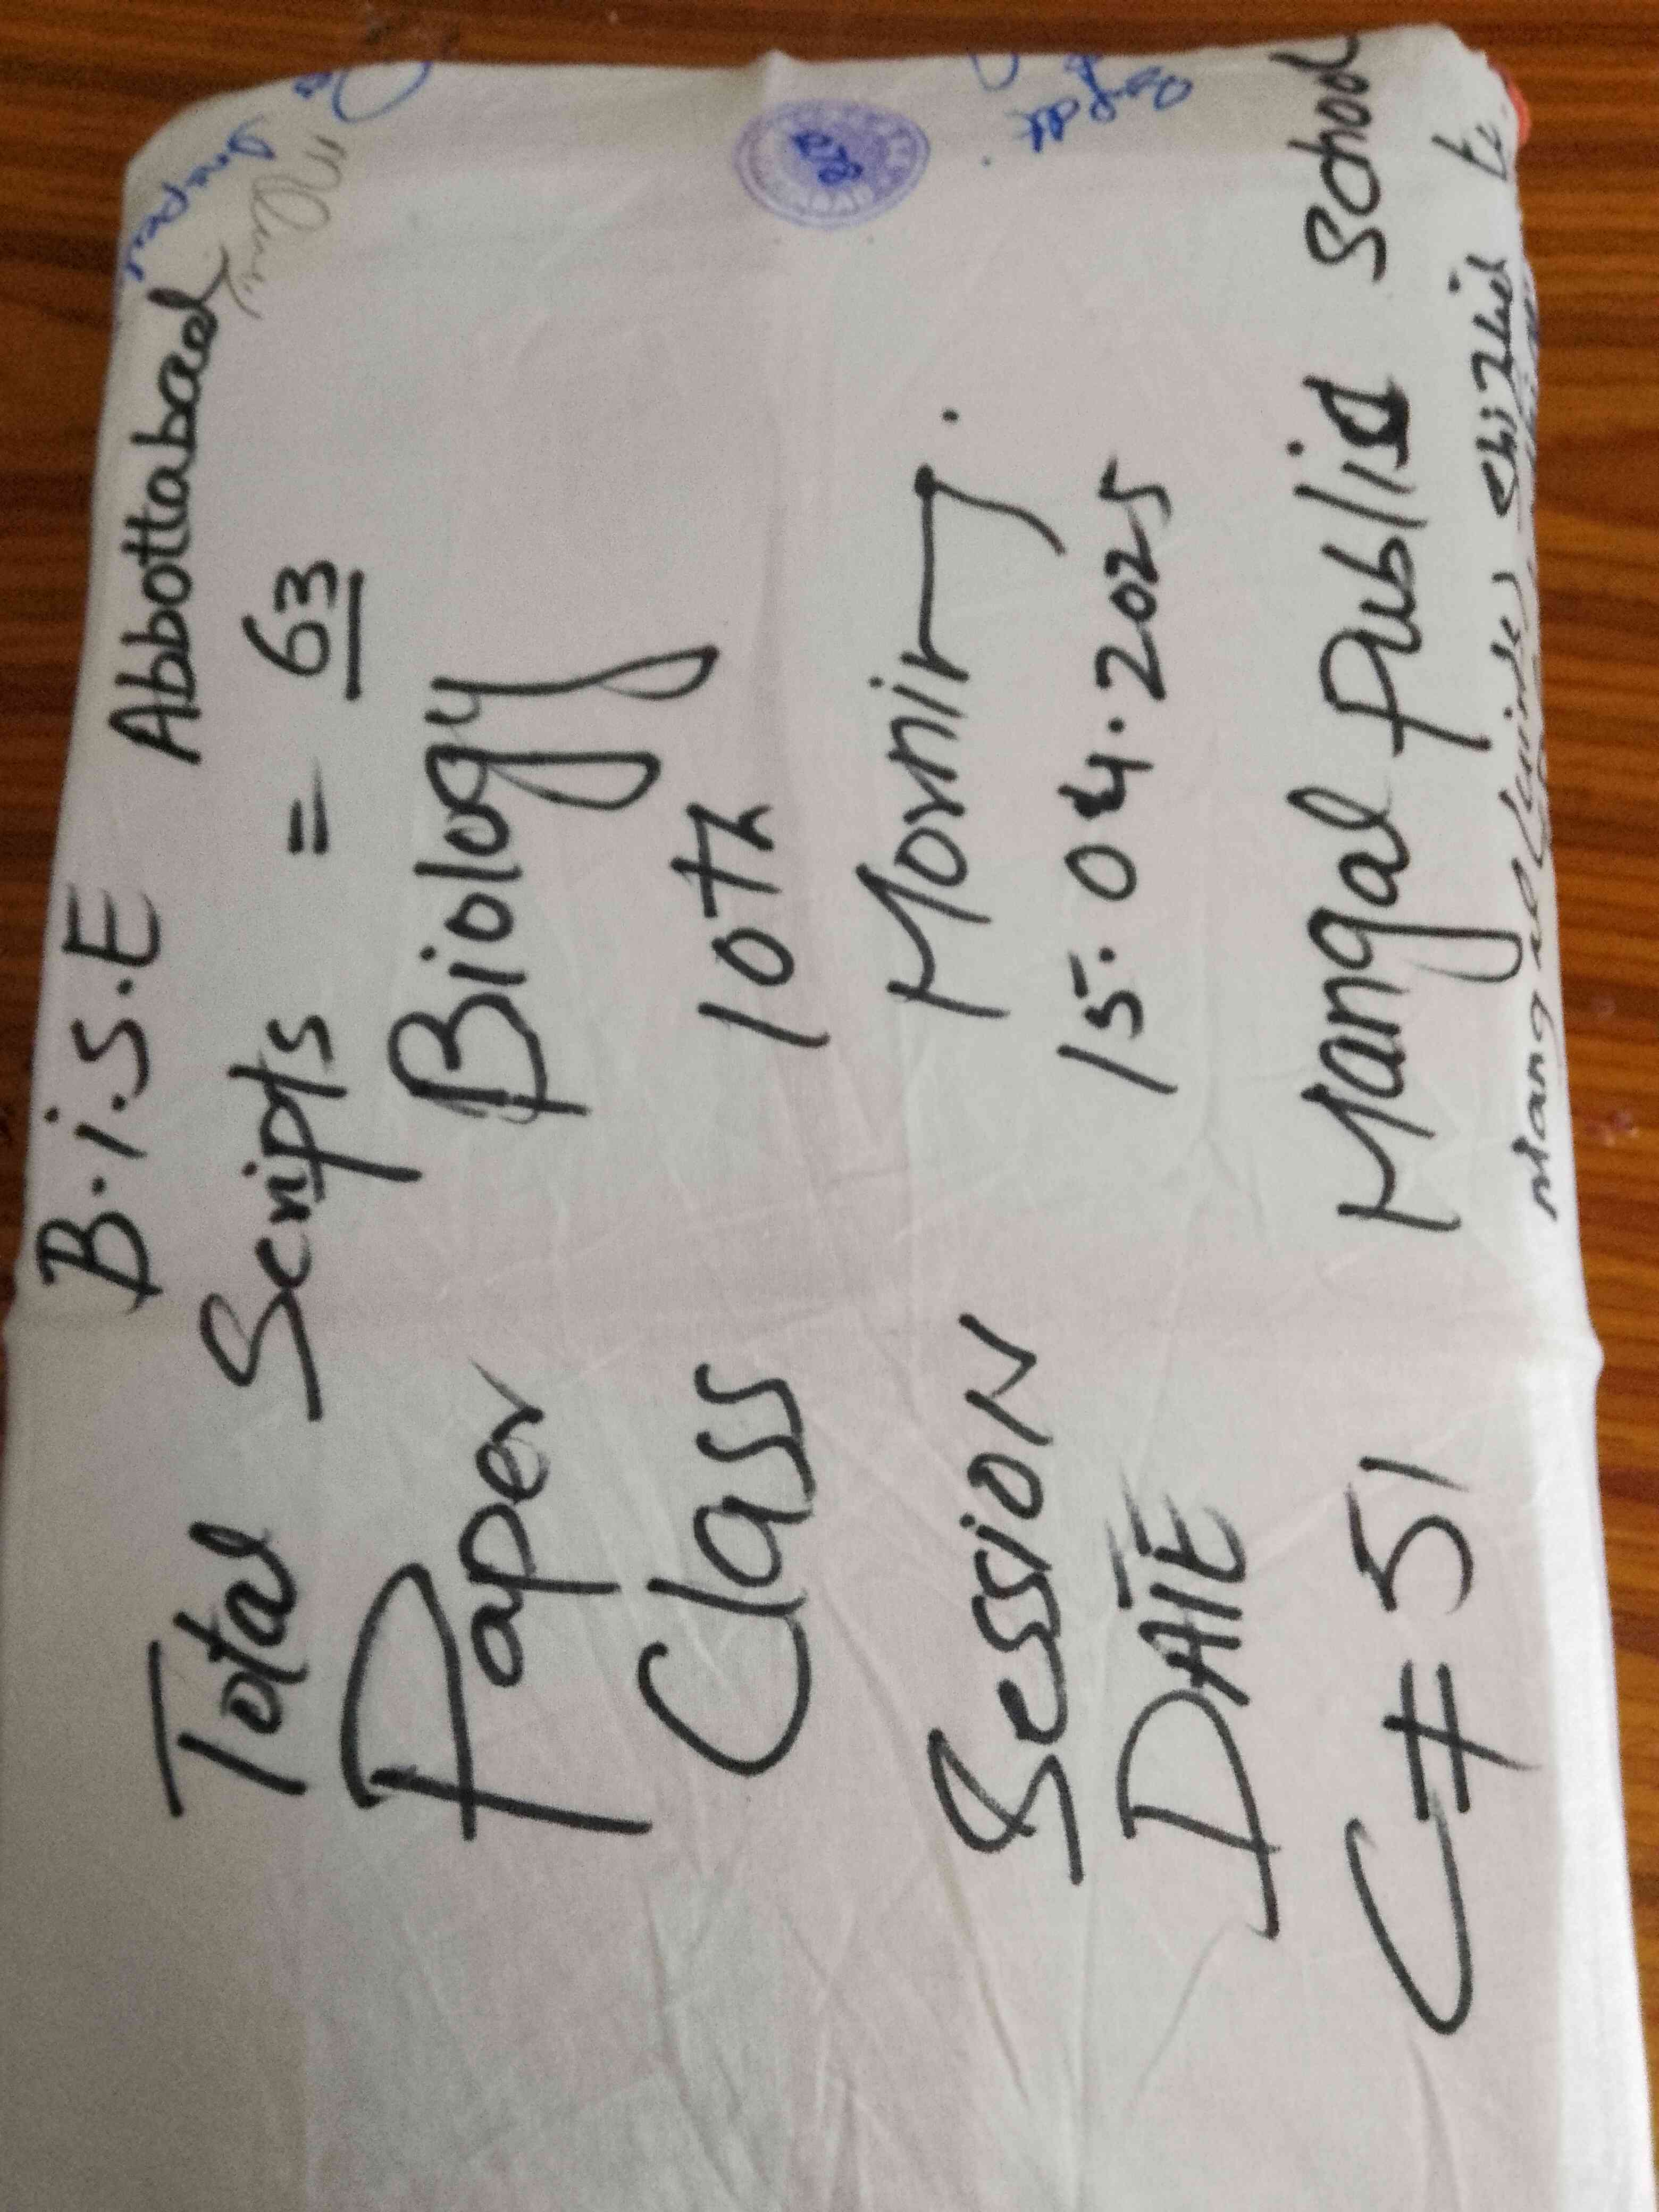 B.i.S.E Abbottabad
Total Scripts = 63
Paper Biology
Class 10th
Session Morning.
DATE 15.04.2025
C # 51 Mangal Public School
Mangal
Supdt
Inspector